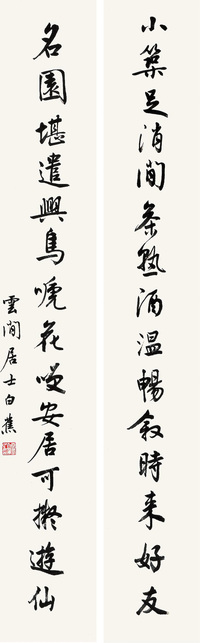 小築足消閒茶熟酒溫暢敘時来好友
名園堪遣興鳥嗁花安居可擬遊仙
雲間居士白蕉